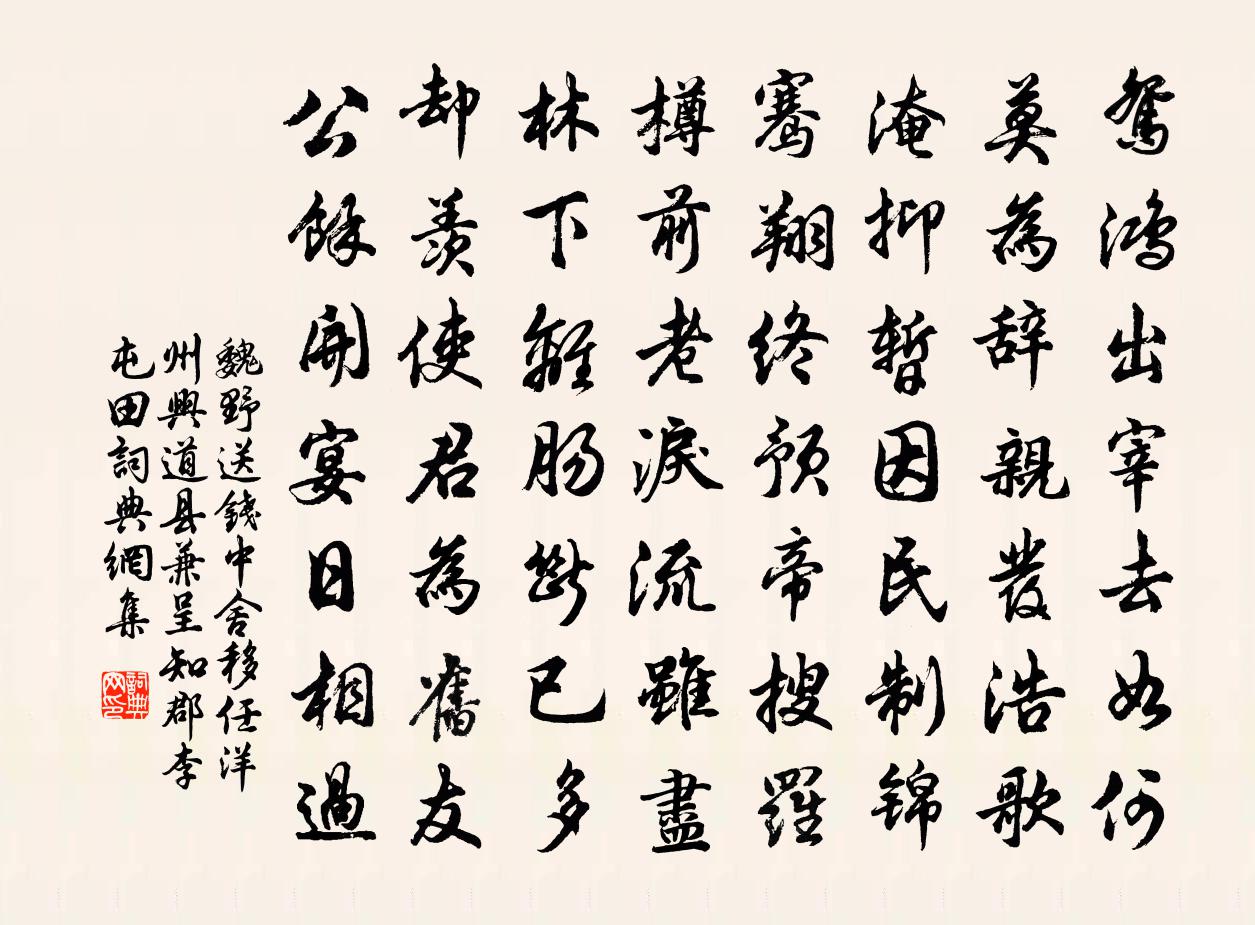 鴛鴻出宰去如何
莫為辞親發浩歌
淹抑暫因民制锦
騫翔終預帝搜羅
樽前老淚流雖盡
林下離腸斷已多
却羨使君為舊友
公餘開宴日相過
魏野送錢中舍移任洋
州興道县兼呈知郡李
屯田詞典網集
詞典网印